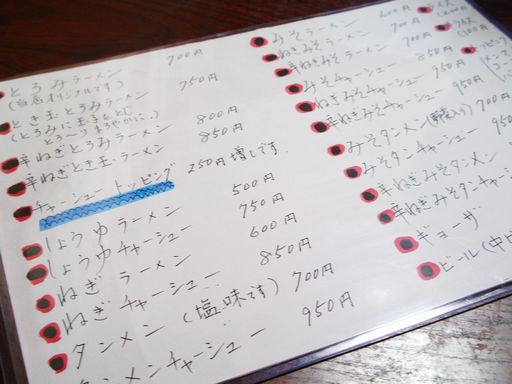 とろみラーメン 700円
(当店オリジナルです)
とき玉とろみラーメン 750円
(とろみに玉子をとじ
とろーりまろやかに。)
辛ねぎとろみラーメン 800円
辛ねぎとき玉・ラーメン 850円
チャーシュー トッピング 250円増しです.
しょうゆラーメン 500円
しょうゆチャーシュー 750円
ねぎ ラーメン 600円
ねぎ チャーシュー 850円
タンメン (塩味です) 700円
タンメンチャーシュー 950円
みそラーメン 600円
辛ねぎみそラーメン 700円
みそチャーシュー 850円
辛ねぎみそチャーシュー 950円
みそタンメン 700円
みそタンチャーシュー 950
辛ねぎみそタンメン
辛ねぎみそタンチャーシ
ギョーザ
ビール(中ビ
ライス